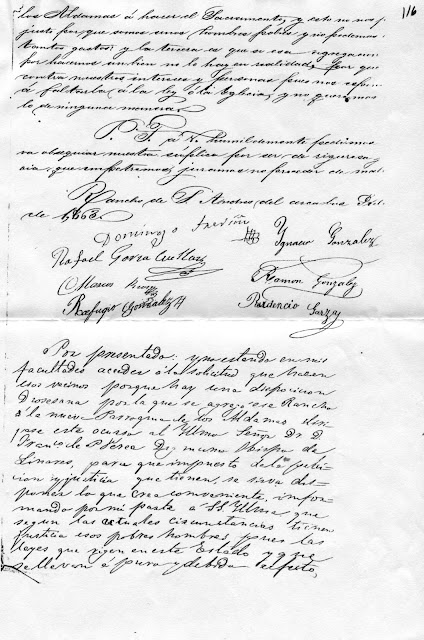 116
los Aldamas á hacer el Sacramento, y esto no nos
justo por que somos unos hombres pobres y no podemos
tantos gastos y la tercera es que se esa agregacion
por hacernos un bien no lo hay en realidad, por que
contra nuestros intereses y personas pues nos
faltarle á la ley, la Yglecia, y no queremos
lo de ninguna manera.
P. T. á V. humildemente pedimos
va obsequiar nuestra suplica por ser de rigurosa
cia, que impetramos, juramos no proceder de mal
Rancho de S. Andres, del
de 1868.
Domingo Treviño
Ygnacio Gonzalez
Rafael Gorza Cuellar
Marcos
Ramon Gonzalez
Refugio Gonzalez H
Prudencio Garza
Por presentado: y no estando en mis
facultades acceder á la solicitud que hacen
esos vecinos porque hay una disposicion
Diosesana por la que se agrega ese Rancho
á la nueva Parroquia de los Aldamas diri-
jase este ocurso al Yllmo Señor Dr. D.
Franco. de P. Verea Dignisimo Obispo de
Linares, para que impuesto de la peti-
cion y justicia que tienen, se sirva dis-
poner lo que crea conveniente, infor-
mando por mi parte a SS Yllma que
segun las actuales circunstancias tienen
justicia esos pobres hombres pues las
leyes que rigen en este Estado y que
se llevan á puro y debido efecto,